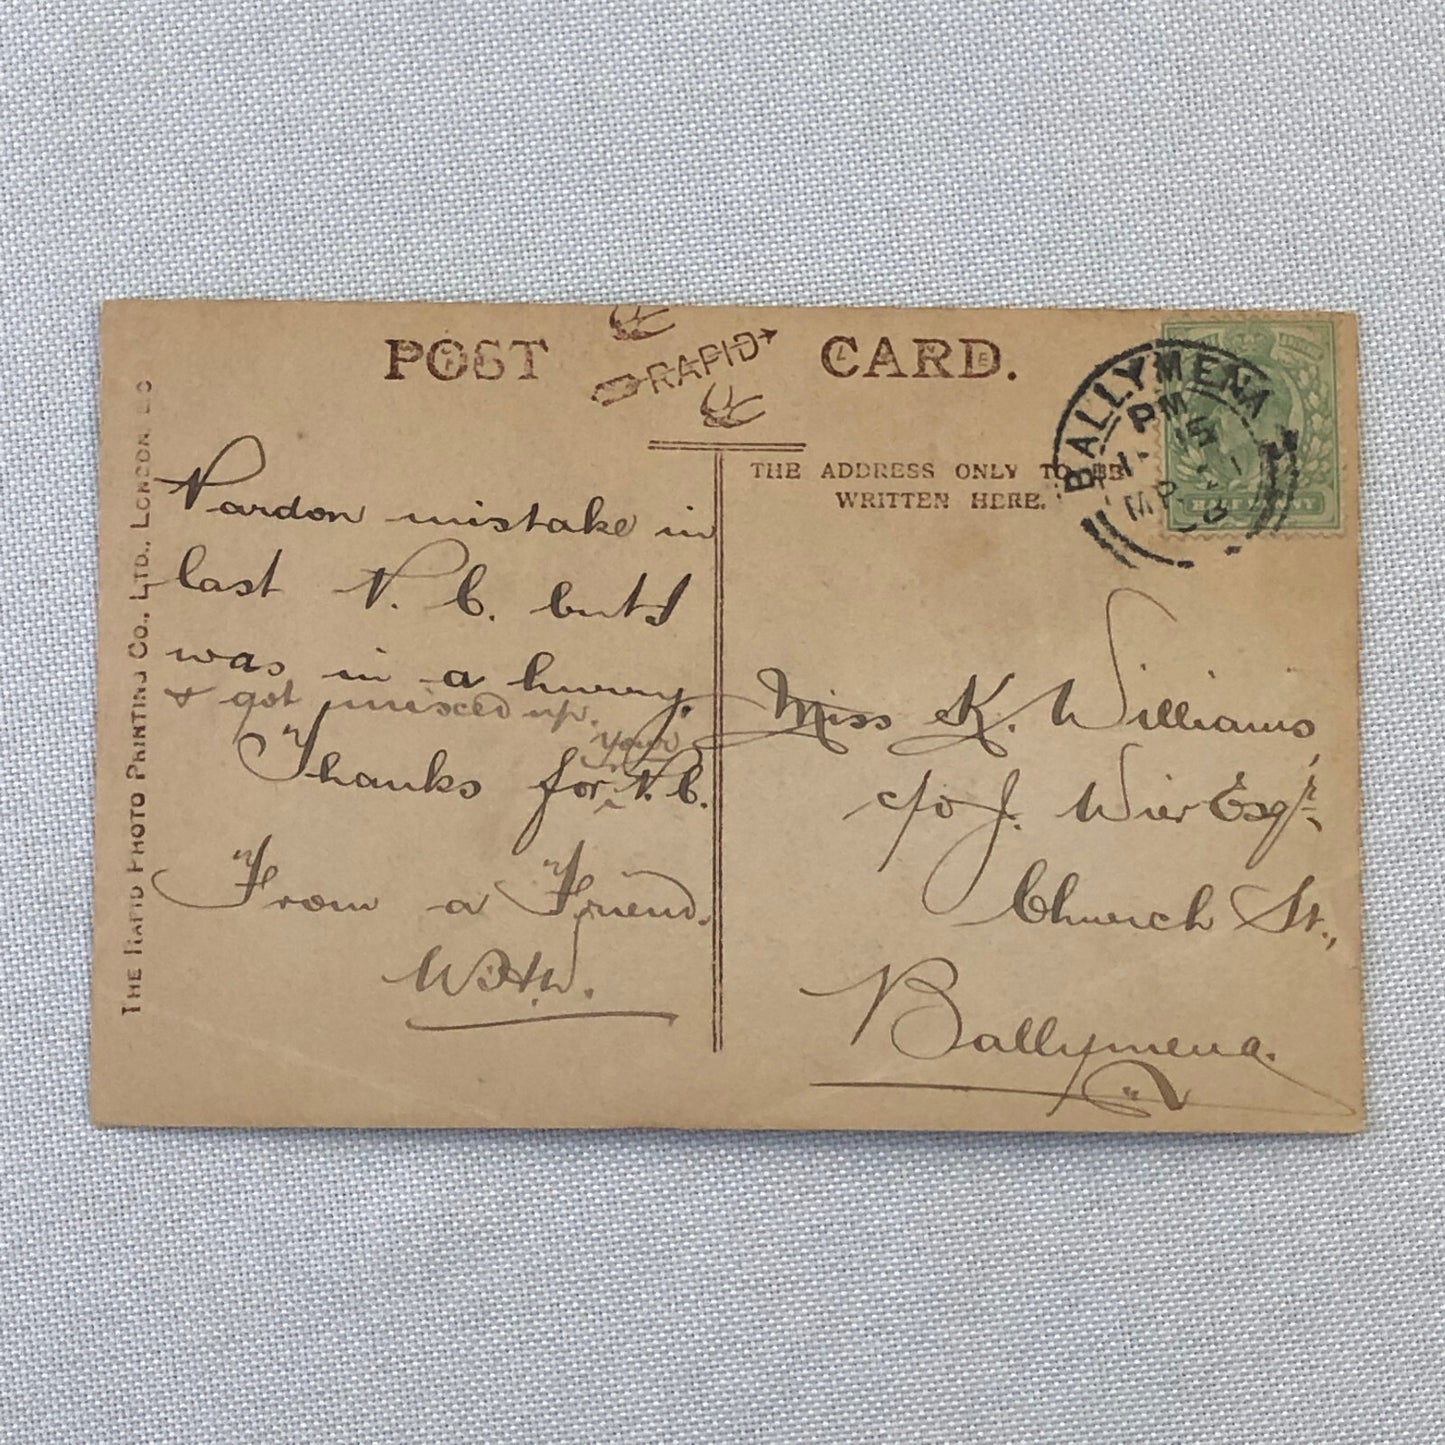 POST CARD.
RAPID
THE ADDRESS ONLY TO BE
WRITTEN HERE.
BALLYMENA
PM
HALFPENNY
THE RAPID PHOTO PRINTING CO., LTD., LONDON. E.C
Pardon mistake in
last P. C. but I
was in a hurry.
& got mixed up.
your
Thanks for P. C.
From a Friend.
Miss K. Williams,
c/o J. Wier Esqr.,
Church St.,
Ballymena.